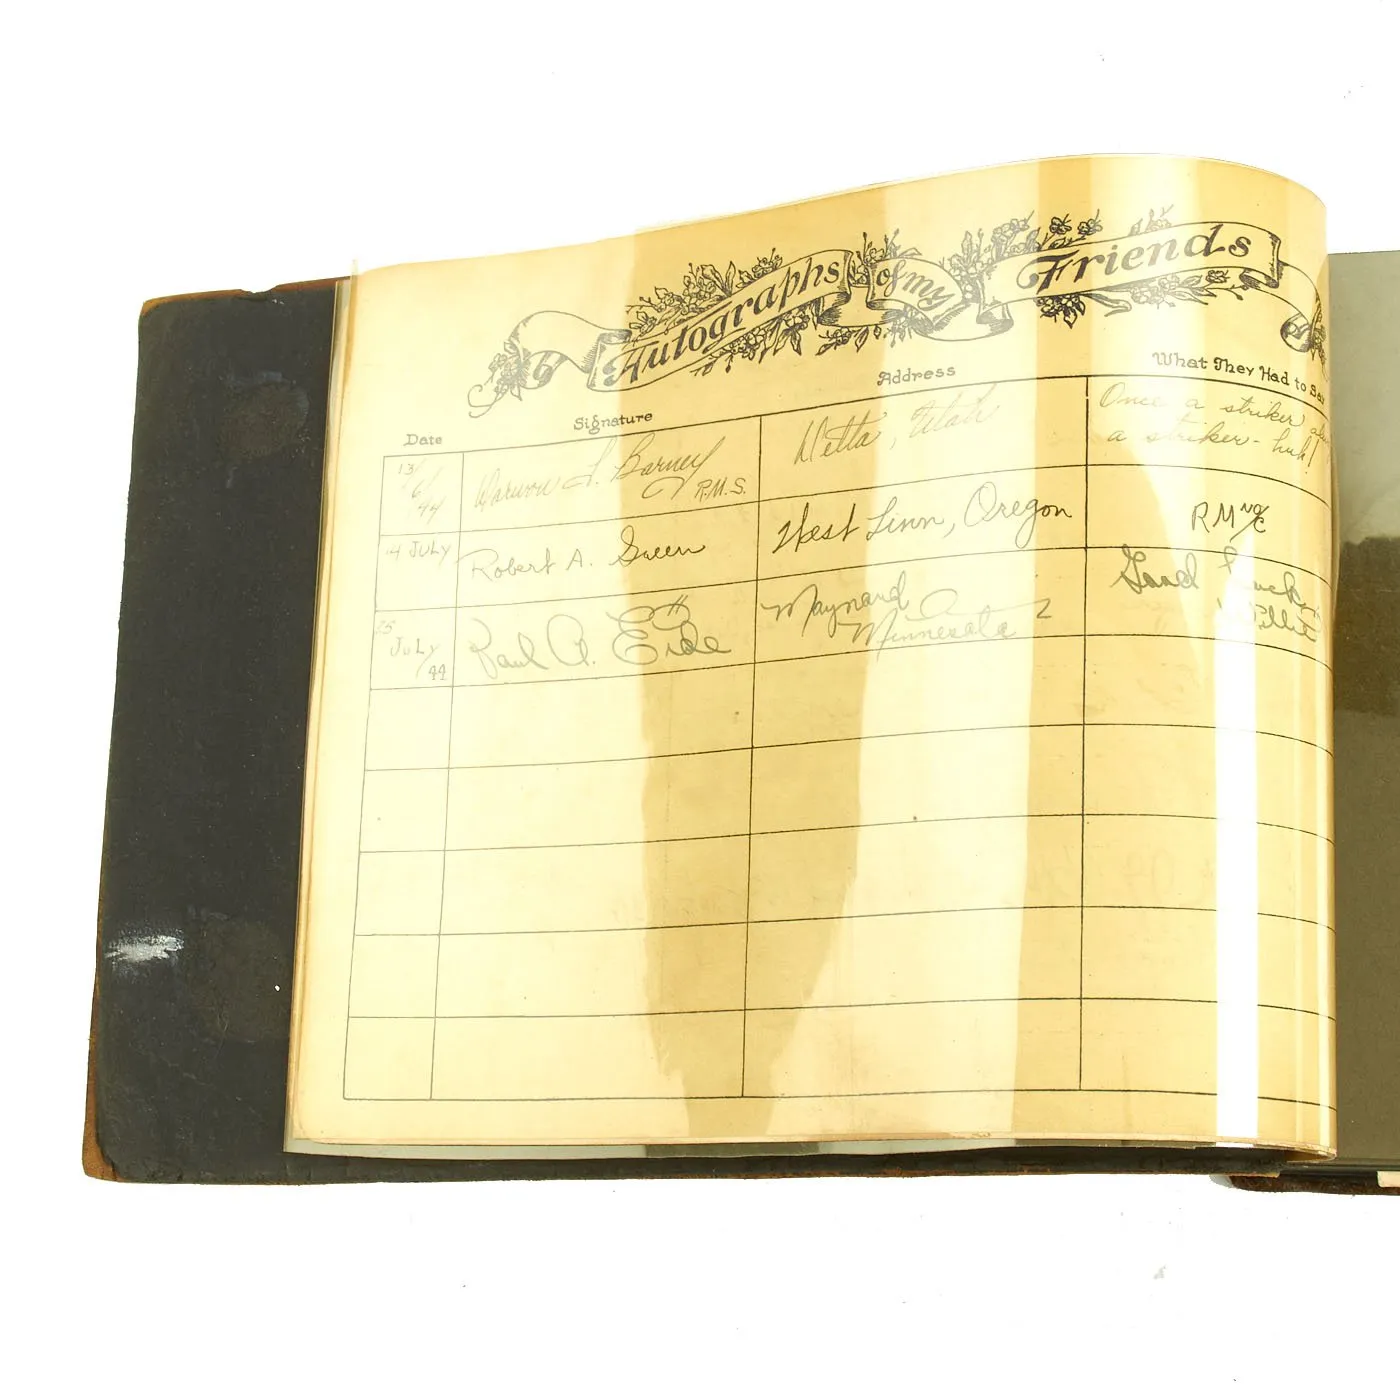 Autographs of my Friends
Date Signature Address What They Had to Say
13/6/44 L. Barney R.M.S. Utah Once a striker
a striker - huh!
14 JULY Robert A. Green West Linn, Oregon RM
25 JULY/44 Paul A. Eide Maynard Minnesota Good Luck